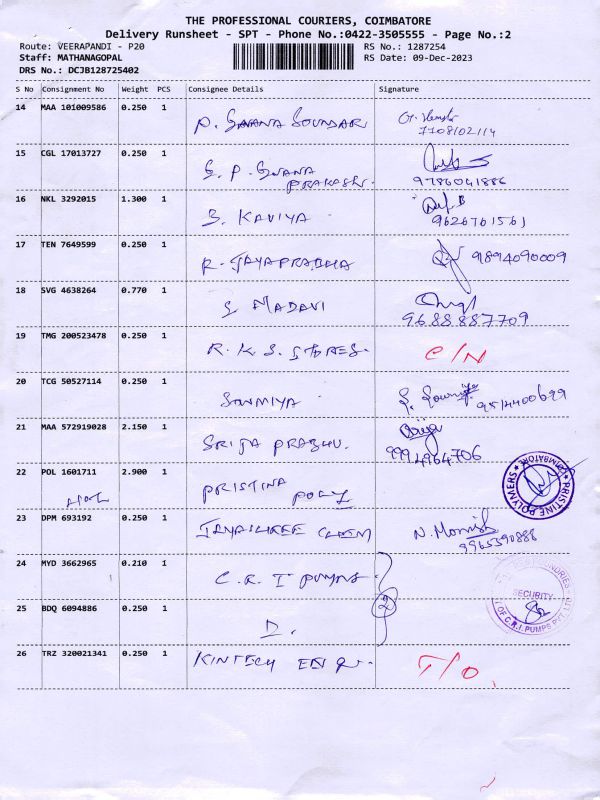 THE PROFESSIONAL COURIERS, COIMBATORE
Delivery Runsheet - SPT - Phone No.:0422-3505555 - Page No.:2
Route: VEERAPANDI - P20
RS No.: 1287254
Staff: MATHANAGOPAL
RS Date: 09-Dec-2023
DRS No.: DCJB128725402
S No Consignment No Weight PCS Consignee Details Signature
14 MAA 101009586 0.250 1 SOUNDAR
7708102114
15 CGL 17013727 0.250 1 S. P. GNANA
PRAKASH.
9786041886
16 NKL 3292015 1.300 1 S. KAVIYA
9626761561
17 TEN 7649599 0.250 1 R. JAYAPRABHA 9894090009
18 SVG 4638264 0.770 1 S MADAVI
9688887709
19 TMG 200523478 0.250 1 R. K. S. STORES. C/N
20 TCG 50527114 0.250 1 SOWMIYA 9514400699
21 MAA 572919028 2.150 1 SRIJA PRABHU.
9994964706
22 POL 1601711 2.900 1 PRISTINA
POLY
PRISTINE POLYMERS ★ COIMBATORE ★
23 DPM 693192 0.250 1 JAYASHREE CHEM N.
9965390888
24 MYD 3662965 0.210 1 C. R. I PUMPS
2
SECURITY
OF C.R.I. PUMPS PVT. LTD
25 BDQ 6094886 0.250 1 D.
26 TRZ 320021341 0.250 1 KINTECH ENG. T/O